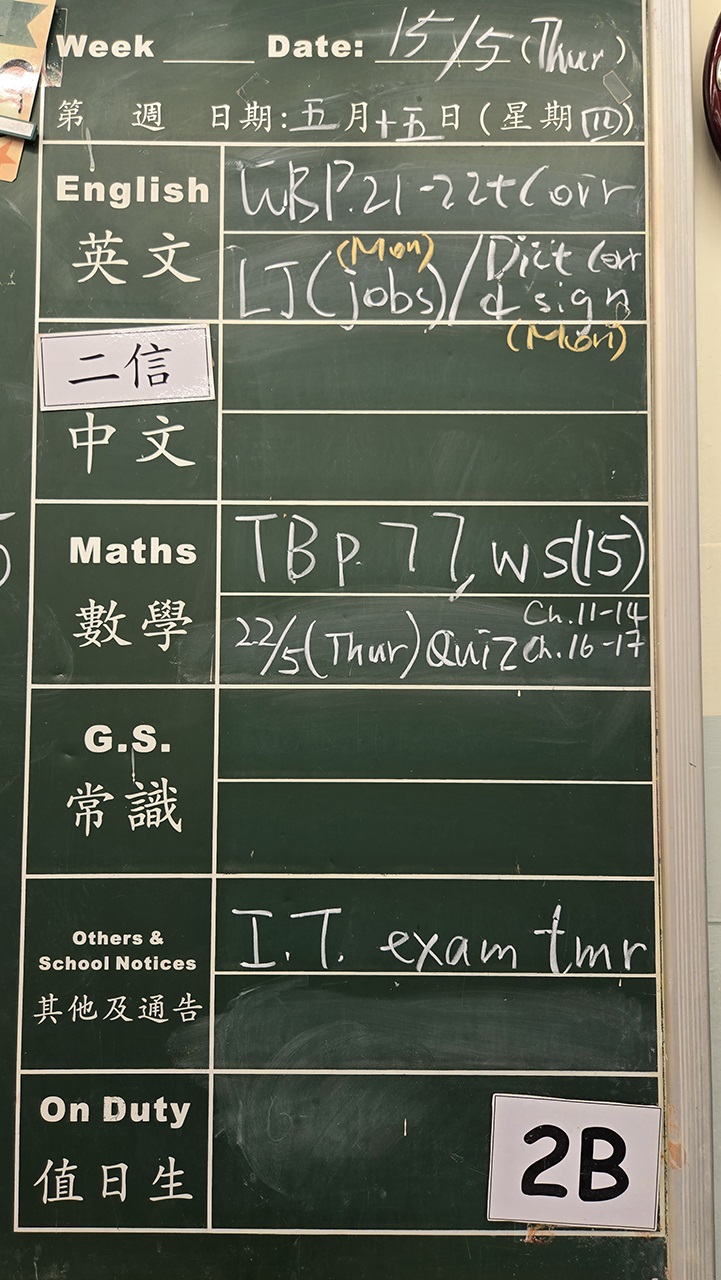 Week ____ Date: 15/5 (Thur)
第 週 日期:五月十五日(星期四)
English
英文
WB P.21-22+Corr
(Mon)
LJ(jobs)/Dict Corr
d sign
(Mon)
二信
中文
Maths
數學
TB P.77, WS(15)
22/5(Thur)Quiz Ch.11-14
Ch.16-17
G.S.
常識
Others &
School Notices
其他及通告
I.T. exam tmr
On Duty
值日生
2B